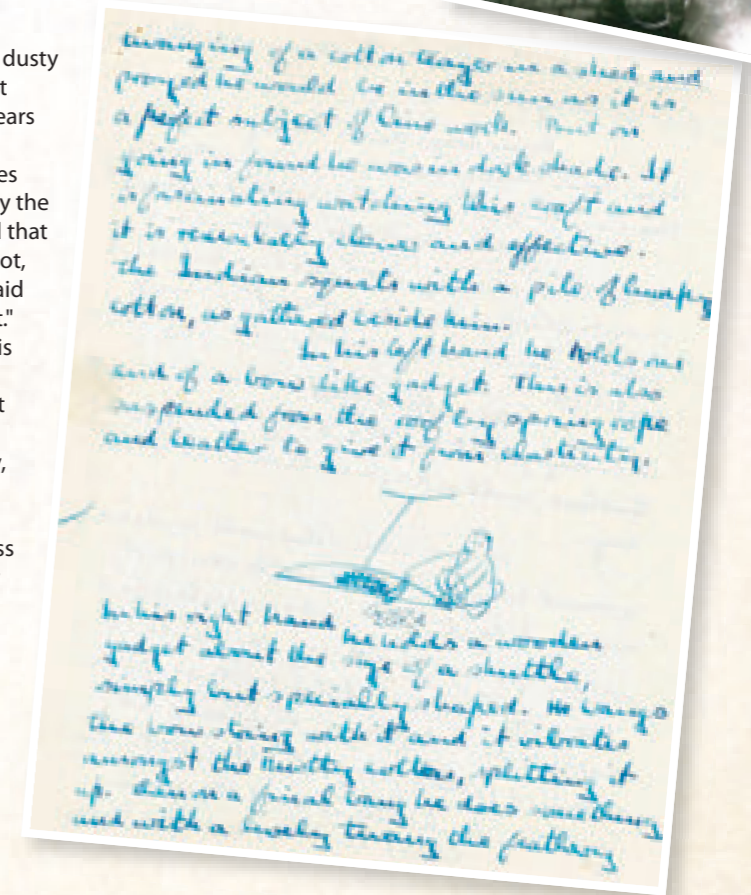 dusty
t
ears
es
y the
d that
ot,
aid
t."
is
t
,
ss
twanging of a cotton teazer in a shed and
prayed he would be in the sun as it is
a perfect subject of Cine work. But on
going in found he was in dark shade. It
is fascinating watching this craft and
it is remarkably clever and effective.
The Indian squats with a pile of lumpy
cotton, as gathered beside him.
In his left hand he holds one
end of a bow like gadget. This is also
suspended from the roof by spring rope
and leather to give it elasticity.
In his right hand he holds a wooden
gadget about the size of a shuttle,
simply but specially shaped. He bangs
the bow string with it and it vibrates
amongst the knotty cotton, splitting it
up. On a final bang he does something
and with a lovely twang the feathery